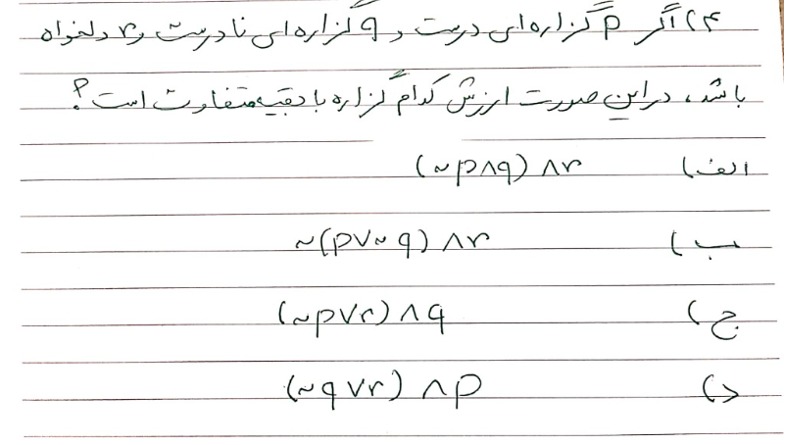 ۲۴) اگر p گزاره‌ای درست و q گزاره‌ای نادرست و r دلخواه
باشد، در این صورت ارزش کدام گزاره با بقیه متفاوت است؟
الف) (~p∧q) ∧r
ب) ~(p∨~q) ∧r
ج) (~p∨r) ∧q
د) (~q∨r) ∧p